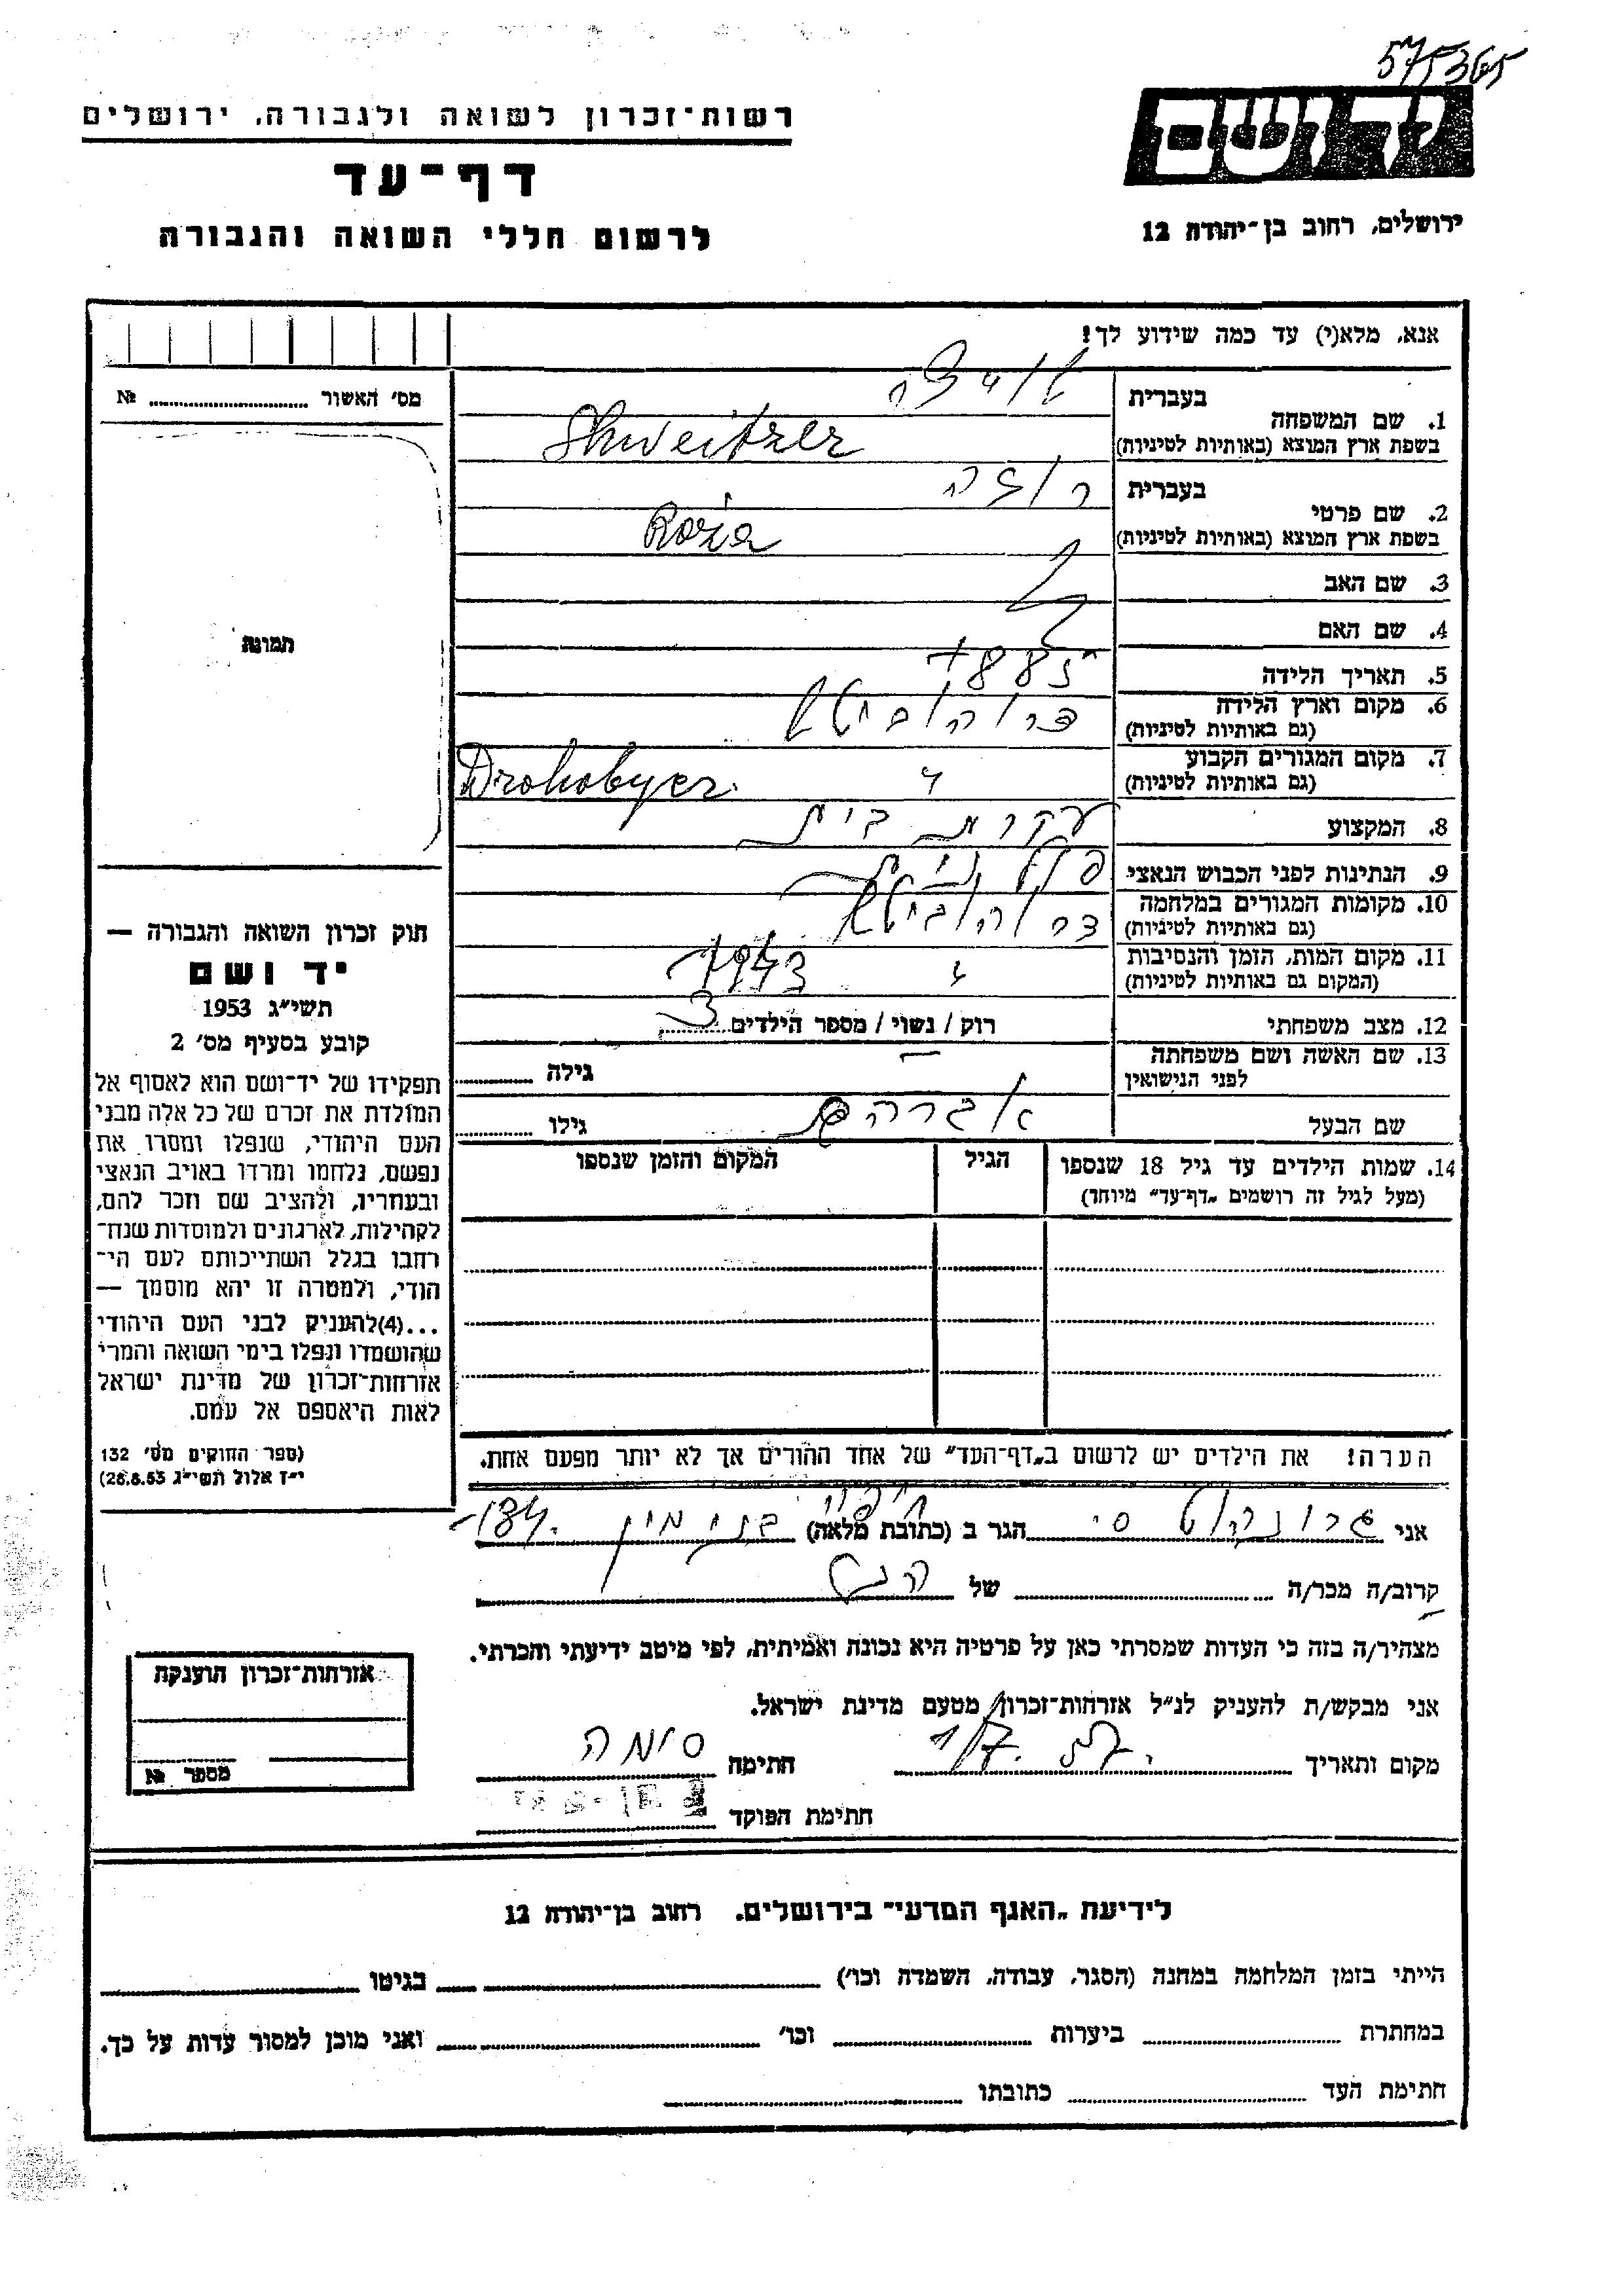 575365
יד ושם
ירושלים, רחוב בן־יהודה 12
רשות־זכרון לשואה ולגבורה, ירושלים
דף־עד
לרשום חללי השואה והגבורה
אנא, מלא(י) עד כמה שידוע לך!
מס׳ האשור № 
תמונה
חוק זכרון השואה והגבורה —
יד ושם
תשי״ג 1953
קובע בסעיף מס׳ 2
תפקידו של יד־ושם הוא לאסוף אל
המולדת את זכרם של כל אלה מבני
העם היהודי, שנפלו ומסרו את
נפשם, נלחמו ומרדו באויב הנאצי
ובעוזריו, ולהציב שם וזכר להם,
לקהילות, לארגונים ולמוסדות שנח־
רבו בגלל השתייכותם לעם הי־
הודי, ולמטרה זו יהא מוסמך —
...(4)להעניק לבני העם היהודי
שהושמדו ונפלו בימי השואה והמרי
אזרחות־זכרון של מדינת ישראל
לאות היאספם אל עמם.
(ספר החוקים מס׳ 132
י״ז אלול תשי״ג 28.8.53)
1. שם המשפחה
בעברית
בשפת ארץ המוצא (באותיות לטיניות) Shweitzer
2. שם פרטי
בעברית רוזה
בשפת ארץ המוצא (באותיות לטיניות) Rożia
3. שם האב
4. שם האם
5. תאריך הלידה
6. מקום וארץ הלידה
(גם באותיות לטיניות)
7. מקום המגורים הקבוע
(גם באותיות לטיניות) " Drohobycz.
8. המקצוע עקרת בית
9. הנתינות לפני הכבוש הנאצי פולנית
10. מקומות המגורים במלחמה
(גם באותיות לטיניות) דרוהוביטש
11. מקום המות, הזמן והנסיבות
(המקום גם באותיות לטיניות) " 1943
12. מצב משפחתי רוק / נשוי / מספר הילדים 3
13. שם האשה ושם משפחתה
לפני הנישואין — גילה
שם הבעל אברהם גילו
14. שמות הילדים עד גיל 18 שנספו הגיל המקום והזמן שנספו
(מעל לגיל זה רושמים „דף־עד״ מיוחד)
הערה! את הילדים יש לרשום ב„דף־העד״ של אחד ההורים אך לא יותר מפעם אחת.
אני סי׳ הגר ב (כתובת מלאה) חיפה
קרוב/ה מכר/ה של
מצהיר/ה בזה כי העדות שמסרתי כאן על פרטיה היא נכונה ואמיתית, לפי מיטב ידיעתי והכרתי.
אני מבקש/ת להעניק לנ״ל אזרחות־זכרון מטעם מדינת ישראל.
מקום ותאריך 1/7. 57. חתימה סימה
חתימת הפוקד
אזרחות־זכרון הוענקה
מספר №
לידיעת „האגף המדעי״ בירושלים, רחוב בן־יהודה 12
הייתי בזמן המלחמה במחנה (הסגר, עבודה, השמדה וכו׳) בגיטו
במחתרת ביערות וכו׳ ואני מוכן למסור עדות על כך.
חתימת העד כתובתו